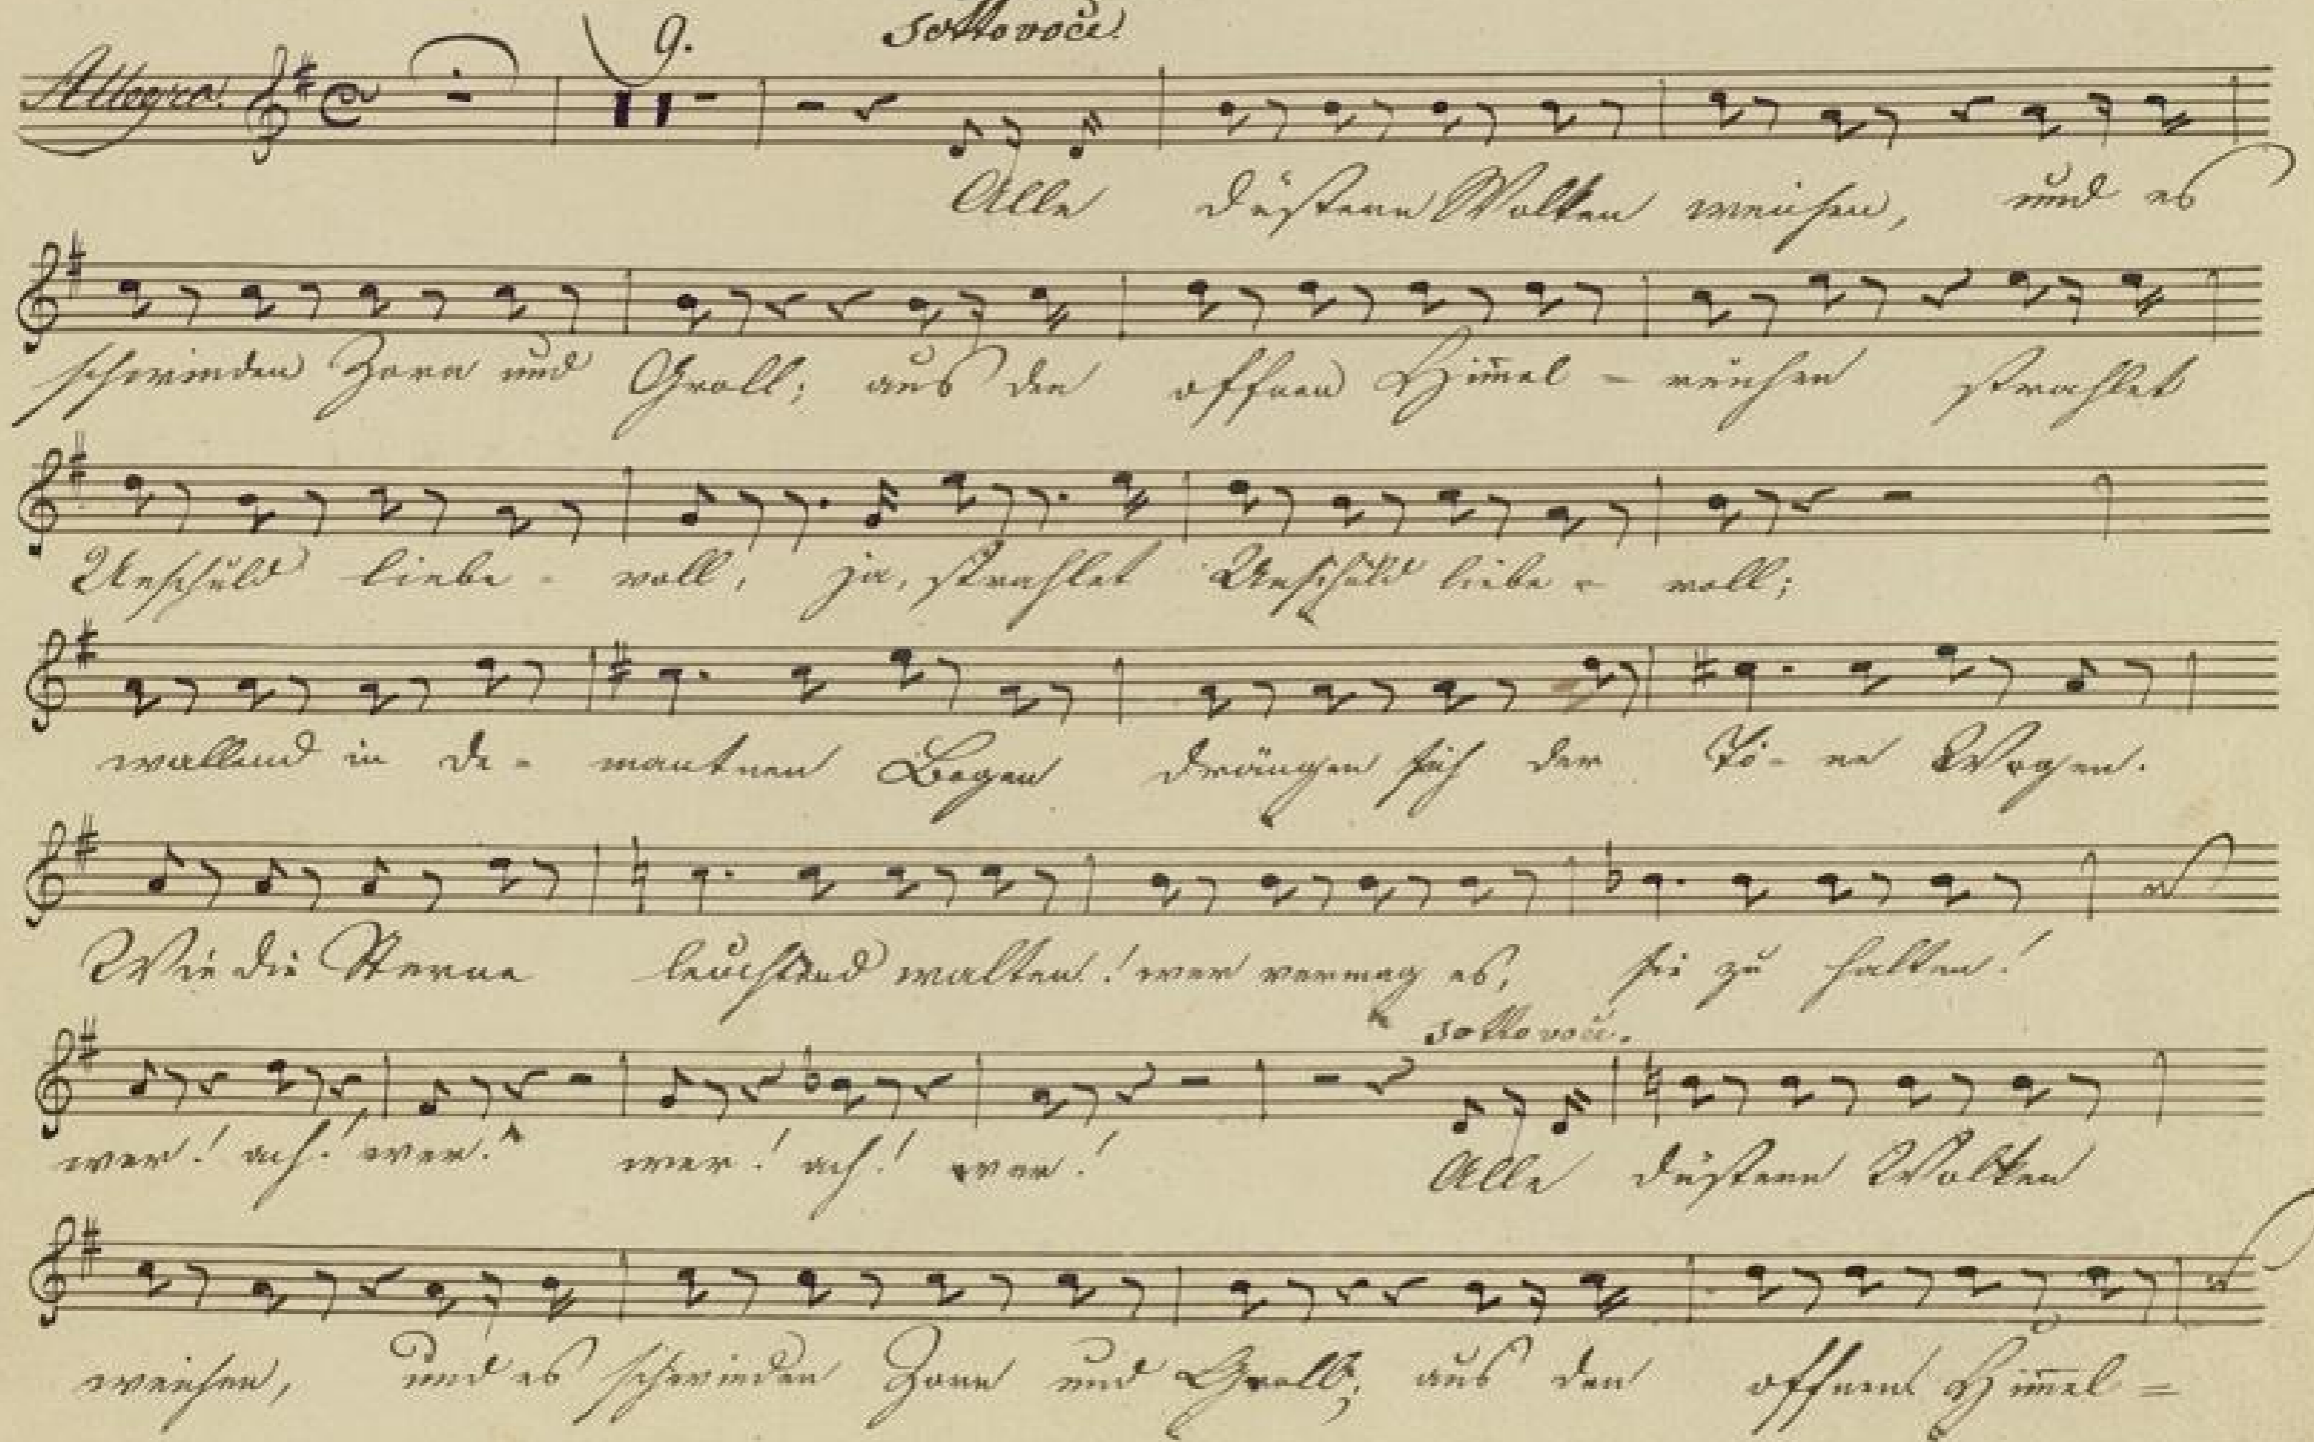 9. sottovoce!
Allegro!
Alle düstern Wolken weichen, und es
schwinden Zorn und Groll; aus den offnen Him̅el - reichen strahlet
Unschuld liebe - voll, ja, strahlet Unschuld liebe - voll;
wallend in de - mantnen Bogen drängen sich der Tö - ne Wogen.
Wie die Sterne leuchtend walten! wer vermag es, sie zu halten!
sottovoce.
wer! ach! wer! wer! ach! wer! Alle düstern Wolken
weichen, und es schwinden Zorn und Groll; aus den offnen Him̅el =